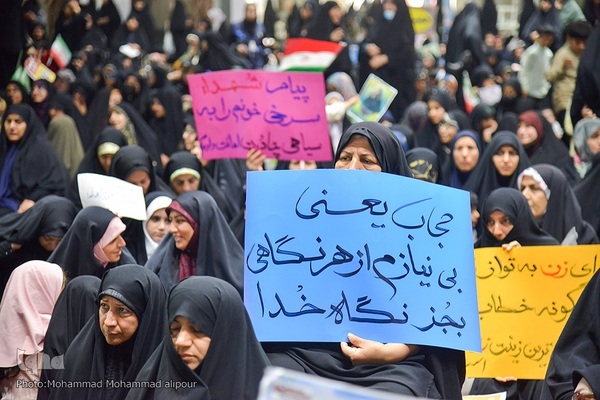 پیام شهداء
سرخی خونم را به
سیاهی چادرت امانت دادم
حجاب یعنی
بی نیازم از هر نگاهی
بجز نگاه خدا
ای زن به تو از
گونه خطاب
ترین زینت
Photo:Mohammad Mohammad alipour